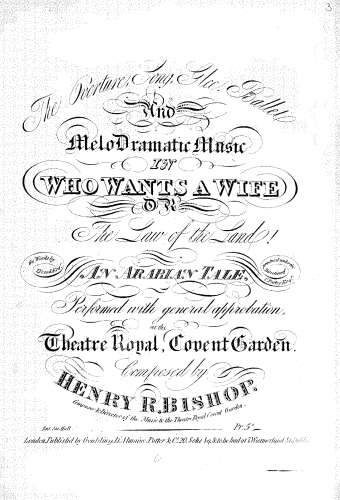 3
The Overture, Song, Glee, Ballet
And
MeloDramatic Music
IN
WHO WANTS A WIFE
OR
The Law of the Land!
the Words by
AN ARABIAN TALE.
Performed with general approbation,
at the
Theatre Royal, Covent Garden.
Composed by
HENRY R. BISHOP.
Composer & Director of the Music to the Theatre Royal Covent Garden.
Ent. Sta. Hall
Pr. 5/
London, Published by Goulding, D'Almaine, Potter & Co. 20, Soho Sq. & to be had at 7, Westmorland St. Dublin.